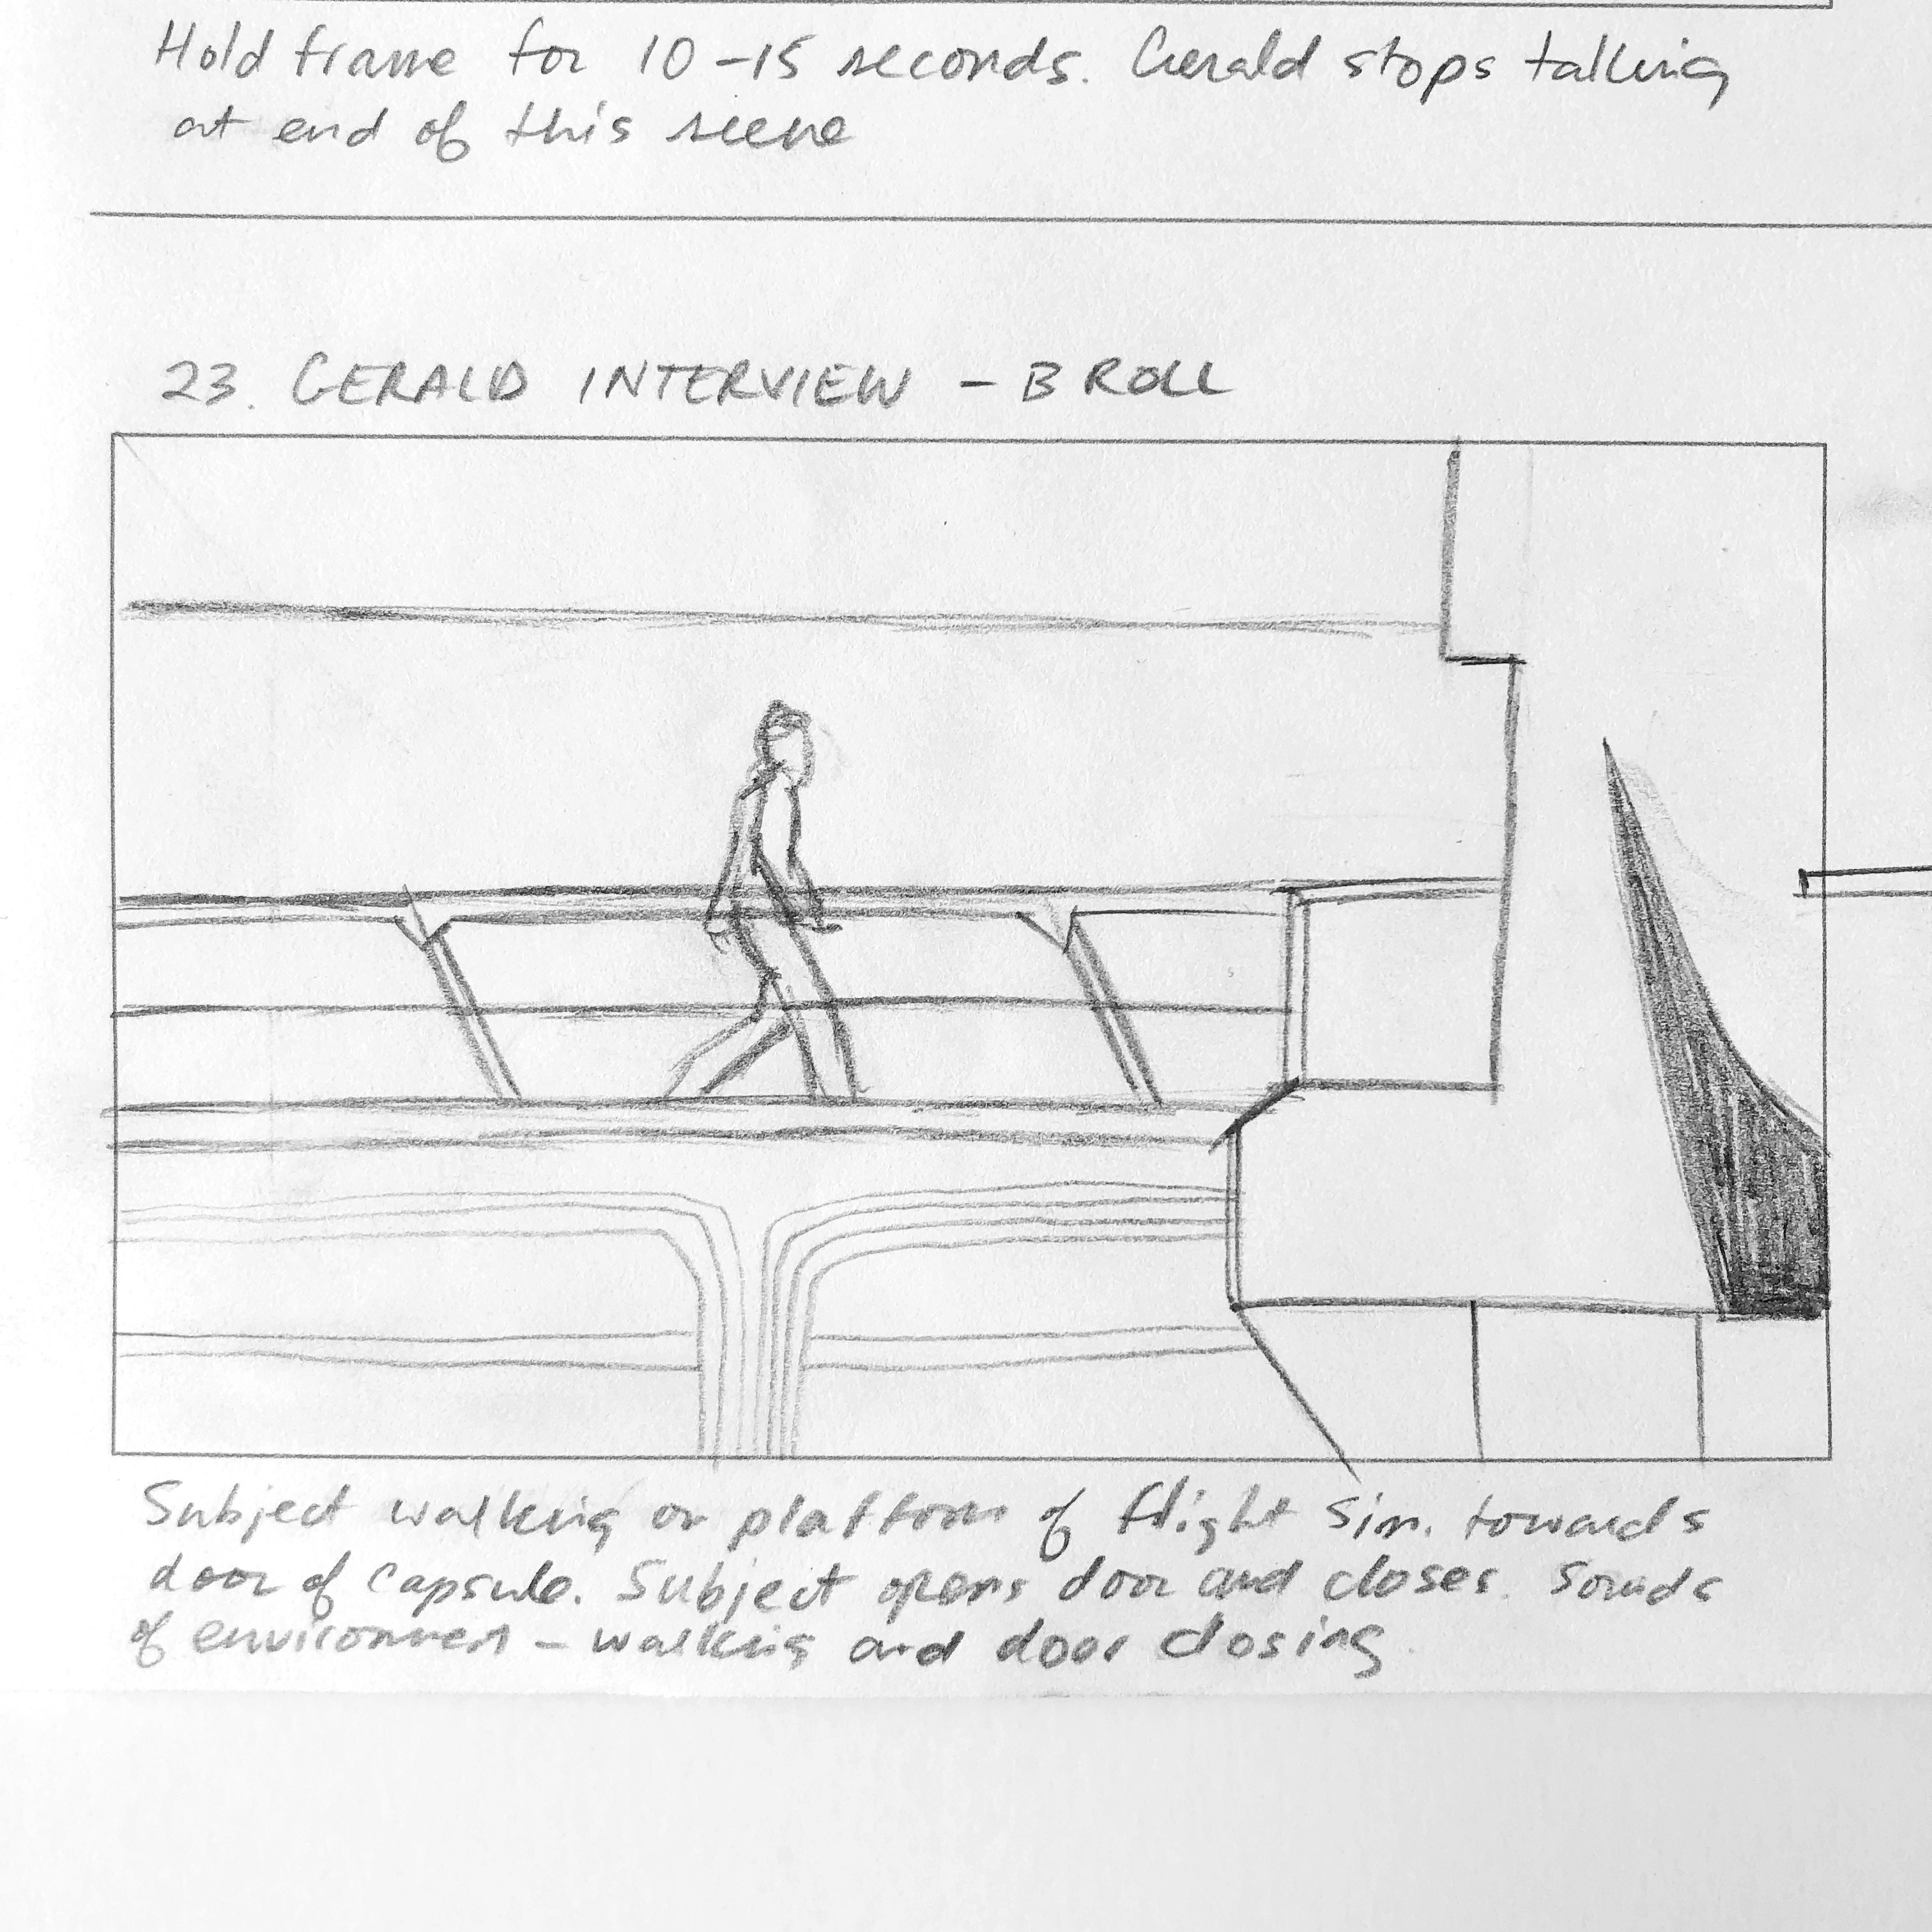 Hold frame for 10-15 seconds. Gerald stops talking
at end of this scene
23. GERALD INTERVIEW - B ROLL
Subject walking on platform of flight sim. towards
door of capsule. Subject opens door and closes. Sounds
of environment - walking and door closing.